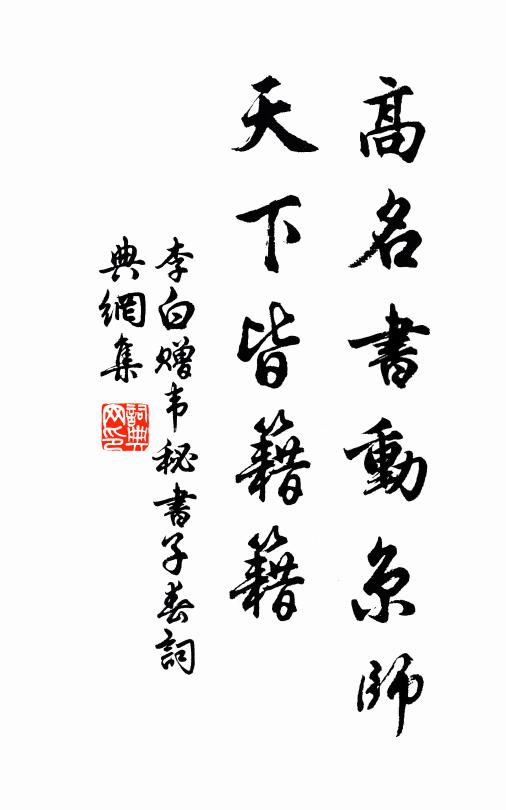 高名書動京師
天下皆籍籍
李白贈韦秘書子春詞
典網集
詞典
网印